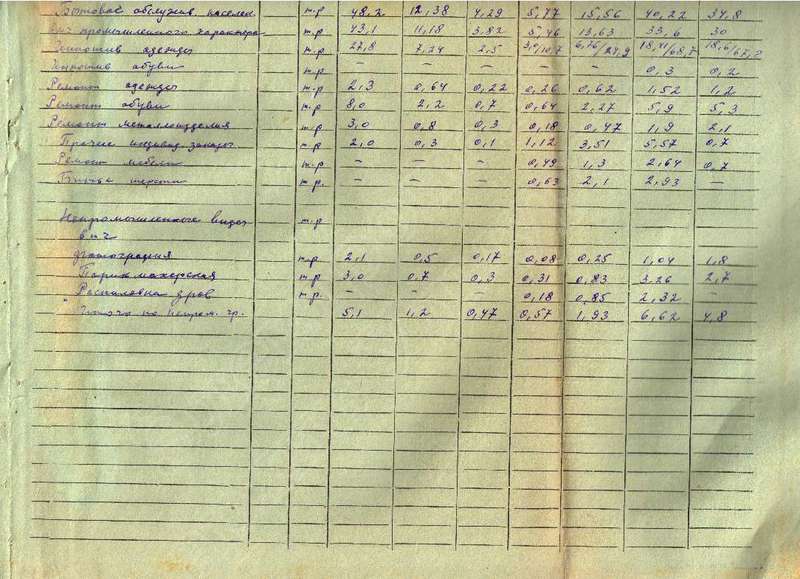 Бытовое обслужив. населен т.р 48,2 12,38 4,29 5,77 15,56 40,22 34,8
в т.ч промышленного характера т.р 43,1 11,18 3,82 5,46 13,63 33,6 30
одежды т.р 27,8 7,24 2,5 18,41/68,7
обуви т.р – – – – – 0,3 0,2
Ремонт одежды т.р 2,3 0,64 0,22 0,26 0,62 1,52 1,2
Ремонт обуви т.р 8,0 2,2 0,7 0,64 2,27 5,9 5,3
Ремонт металлоизделия т.р 3,0 0,8 0,3 0,18 0,47 1,9 2,1
Прочие индивид. заказы т.р 2,0 0,3 0,1 1,12 3,51 5,57 0,7
Ремонт мебели т.р – – – 0,49 1,3 2,64 0,7
Битье шерсти т.р. – – – 0,63 2,1 2,93 –
Непромышленные виды т.р
в т.ч
фотография т.р 2,1 0,5 0,17 0,08 0,25 1,04 1,8
Парикмахерская т.р 3,0 0,7 0,3 0,31 0,83 3,26 2,7
Распиловка дров т.р. – – – 0,18 0,85 2,32 –
Итого по непром. гр. 5,1 1,2 0,47 0,57 1,93 6,62 4,8